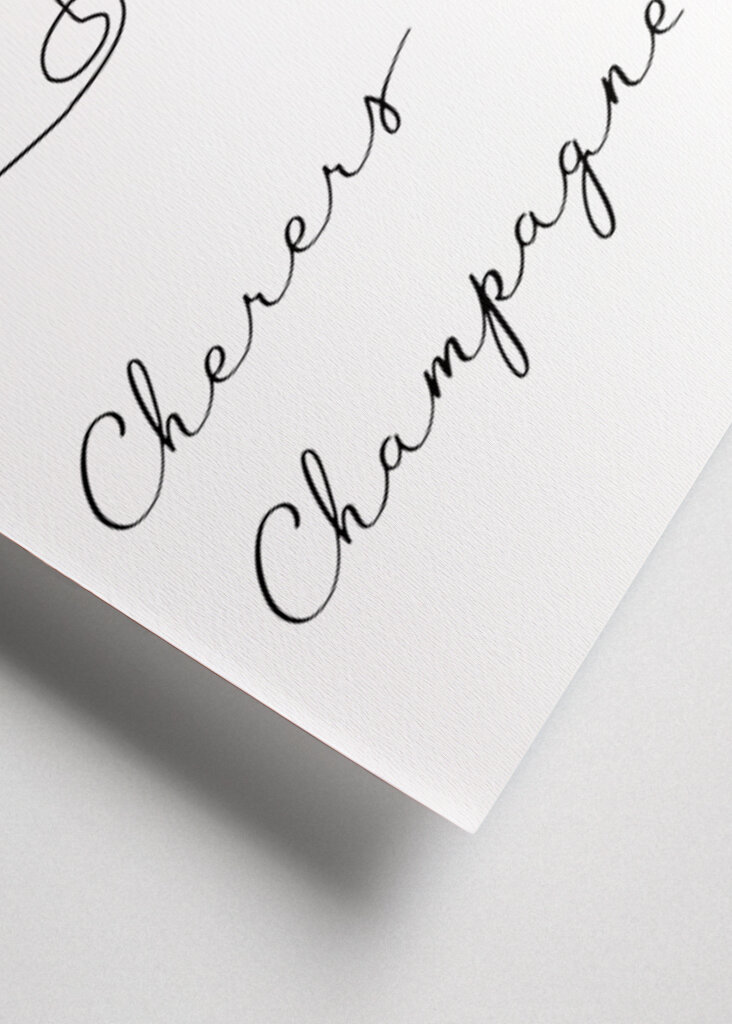 Cherers
Champagne